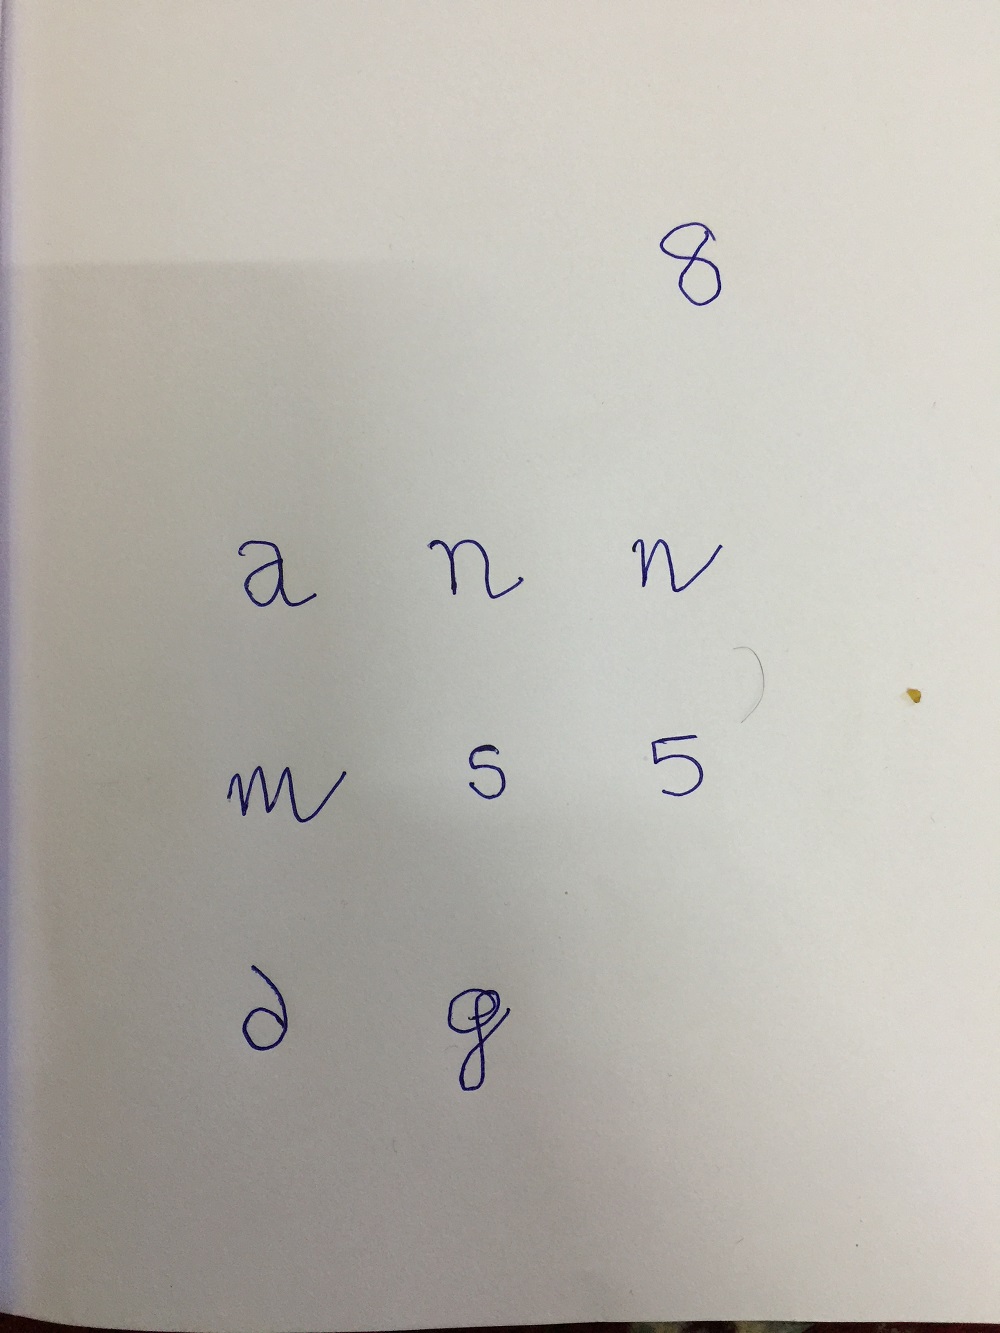 8
a n n
m s 5
∂ g